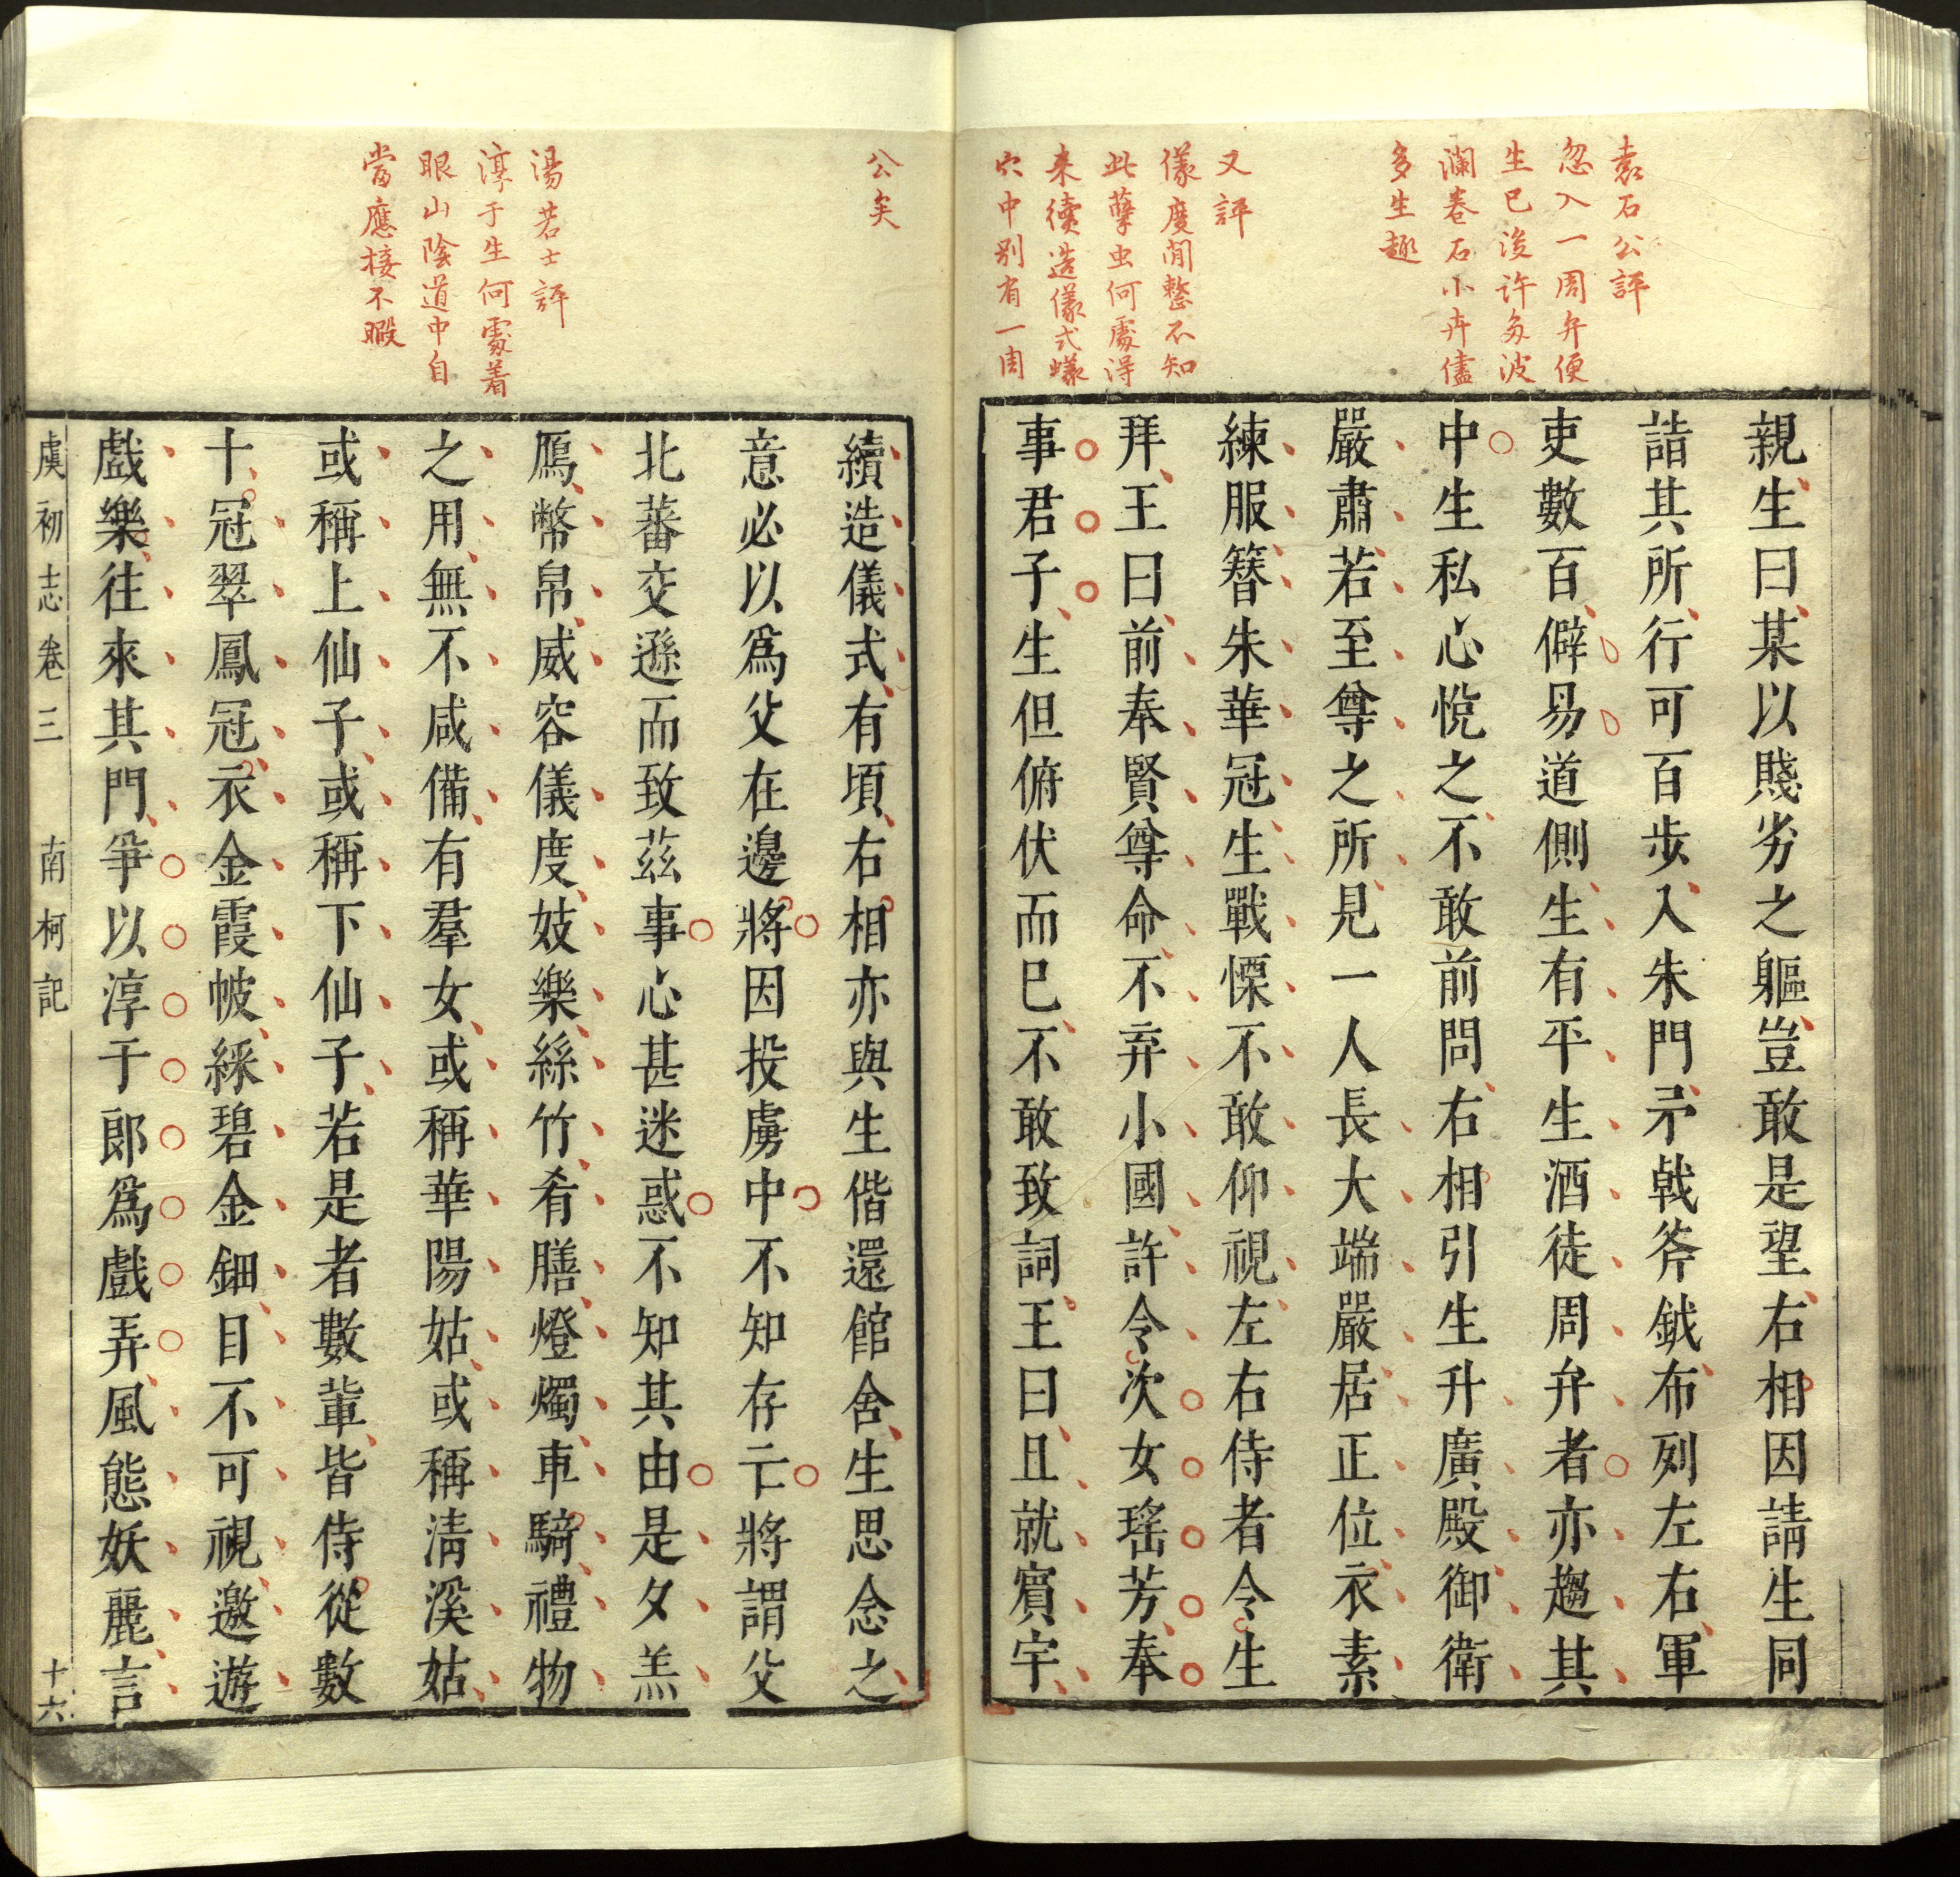 袁石公評
忽入一周弁便
生已後许多波
瀾卷石小卉儘
多生趣
又評
儀度閒整不知
此孽虫何處得
来續造儀式蟻
穴中别有一周
親生曰某以賤劣之軀豈敢是望右相因請生同
詣其所行可百步入朱門矛戟斧鉞布列左右軍
吏數百僻易道側生有平生酒徒周弁者亦趨其
中生私心悅之不敢前問右相引生升廣殿御衛
嚴肅若至尊之所見一人長大端嚴居正位衣素
練服簪朱華冠生戰慄不敢仰視左右侍者令生
拜王曰前奉賢尊命不弃小國許令次女瑤芳奉
事君子生但俯伏而已不敢致詞王曰且就賓宇
公矣
湯若士評
淳于生何處着
眼山陰道中自
當應接不暇
續造儀式有頃右相亦與生偕還館舍生思念之
意必以爲父在邊將因投虜中不知存亡將謂父
北蕃交遜而致茲事心甚迷惑不知其由是夕羔
鴈幣帛威容儀度妓樂絲竹肴膳燈燭車騎禮物
之用無不咸備有羣女或稱華陽姑或稱淸溪姑
或稱上仙子或稱下仙子若是者數輩皆侍從數
十冠翠鳳冠衣金霞帔綵碧金鈿目不可視遨遊
戲樂往來其門爭以淳于郎爲戲弄風態妖麗言
虞初志卷三 南柯記 十六